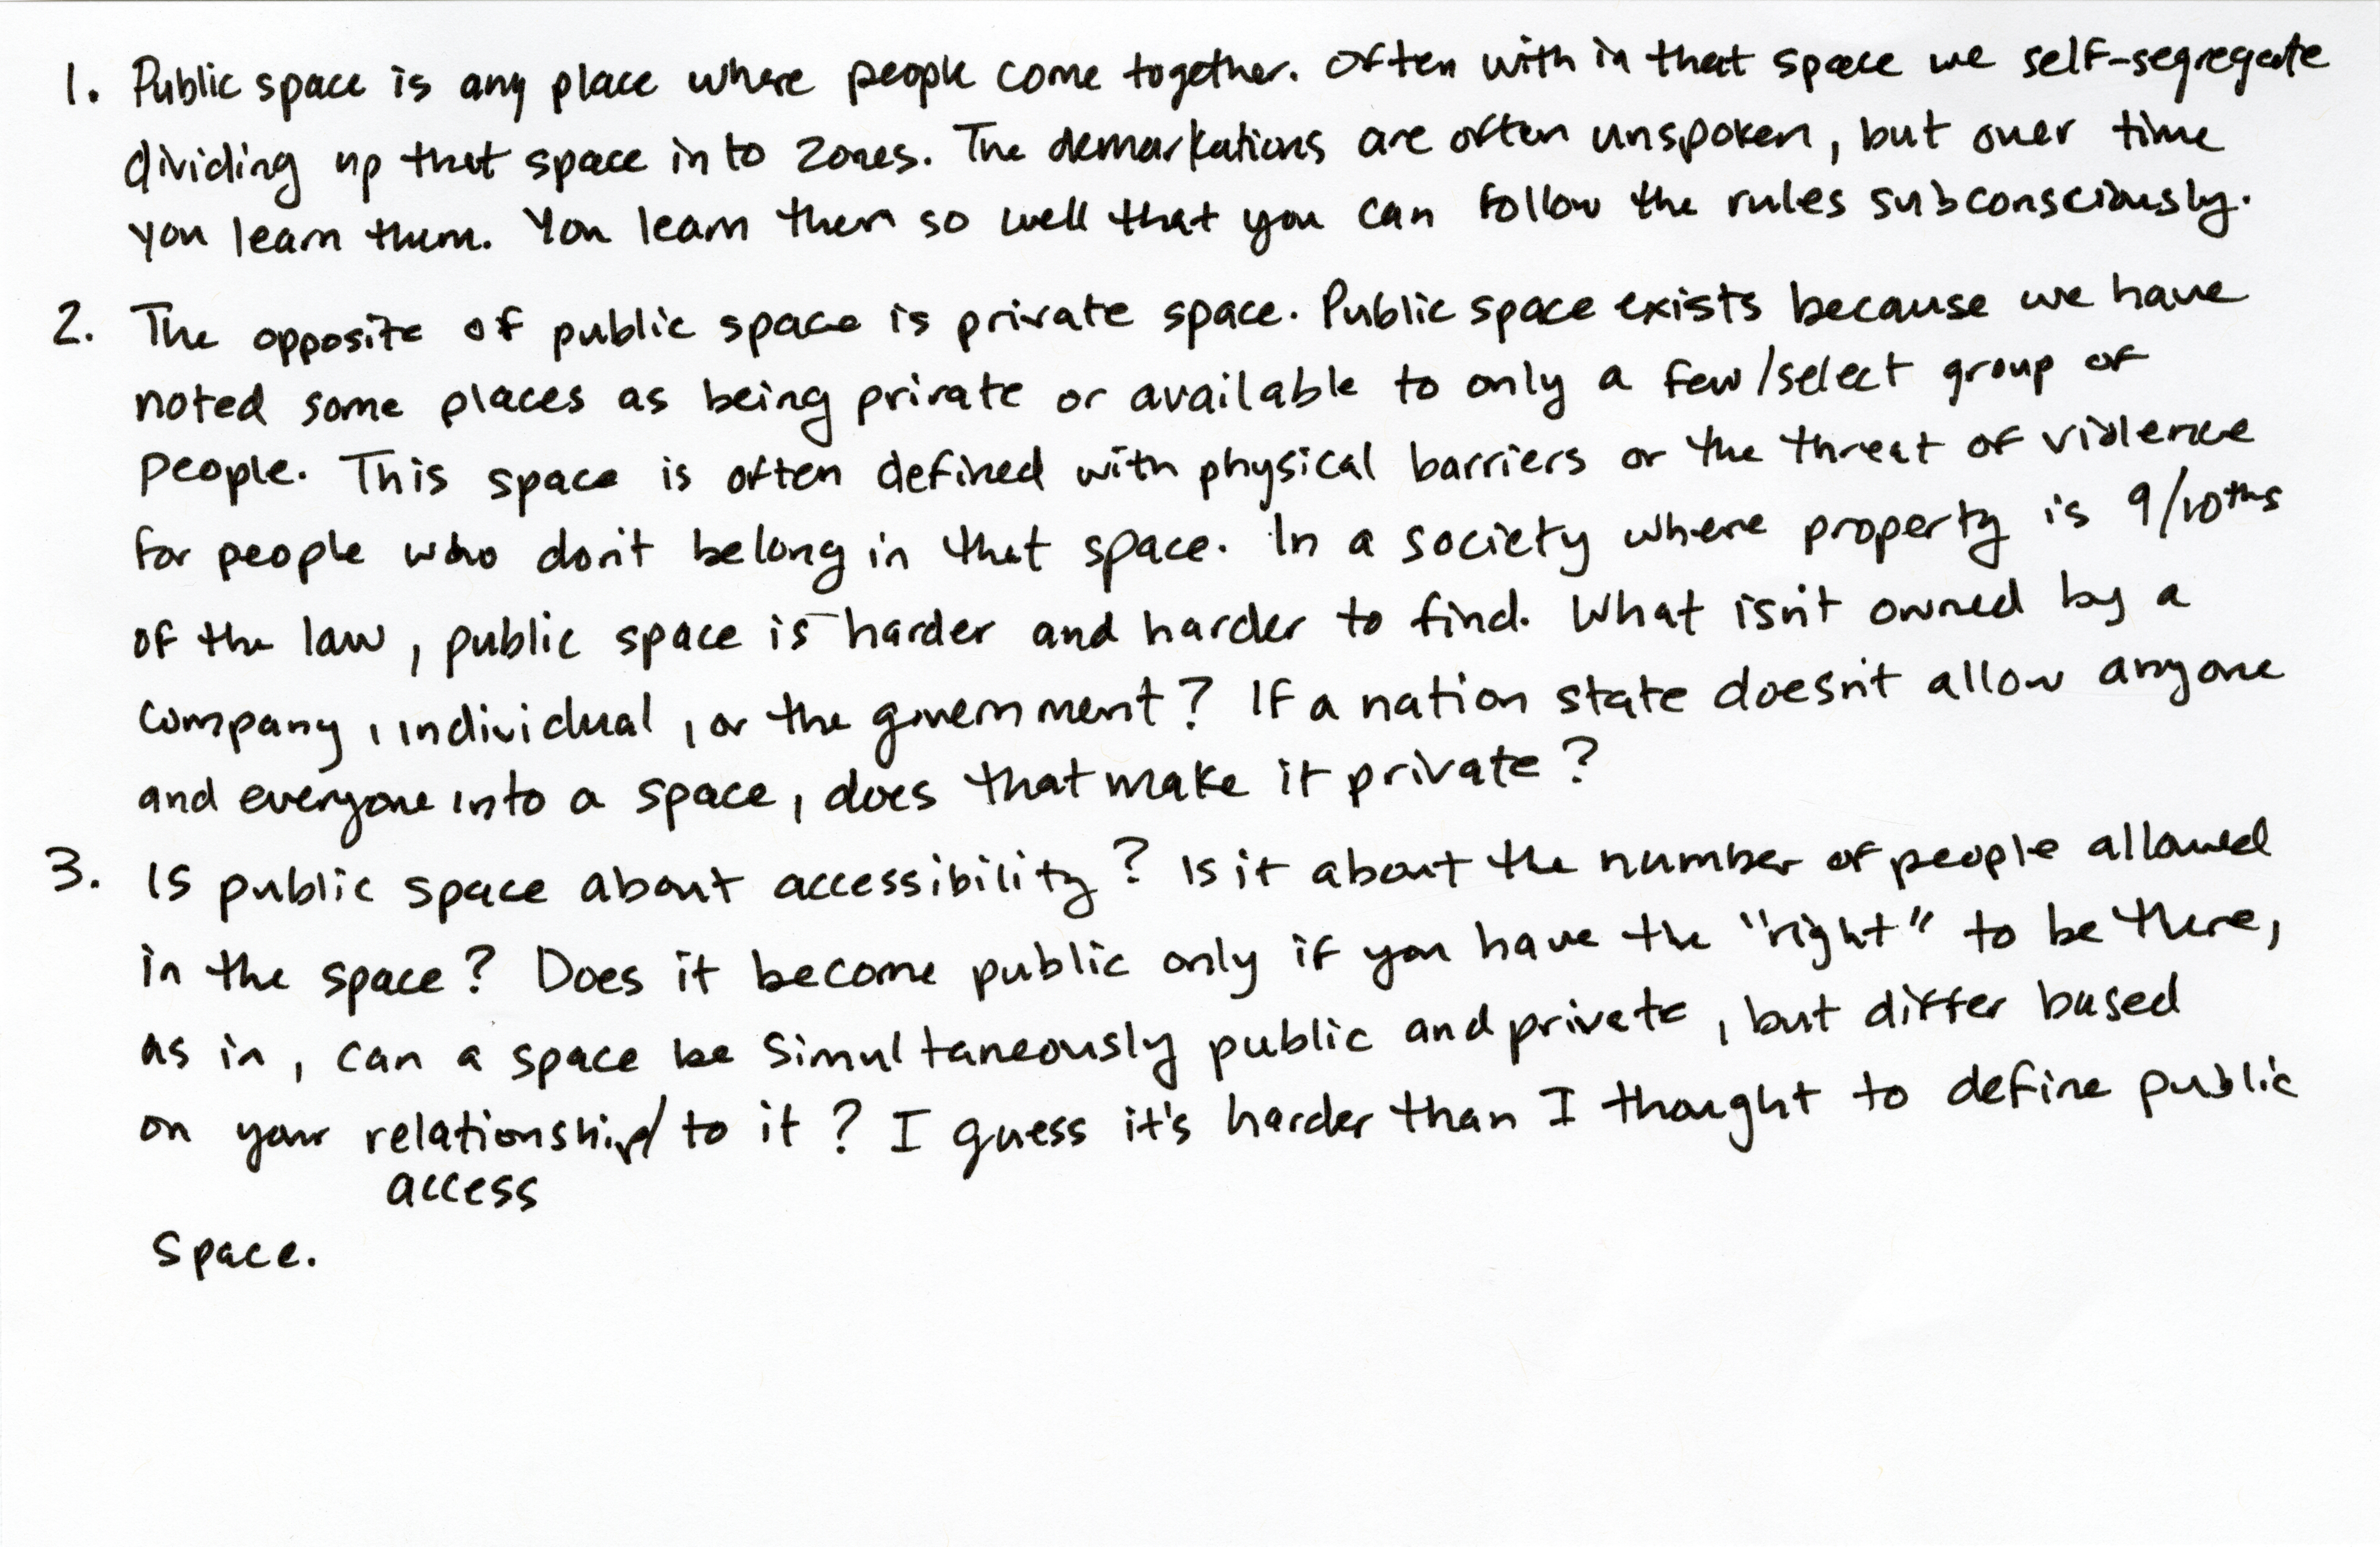 1. Public space is any place where people come together. Often with in that space we self-segregate
dividing up that space in to zones. The demarkations are often unspoken, but over time
you learn them. You learn them so well that you can follow the rules subconsciously.
2. The opposite of public space is private space. Public space exists because we have
noted some places as being private or available to only a few/select group of
people. This space is often defined with physical barriers or the threat of violence
for people who don't belong in that space. In a society where property is 9/10ths
of the law, public space is harder and harder to find. What isn't owned by a
company, individual, or the government? If a nation state doesn't allow anyone
and everyone into a space, does that make it private?
3. Is public space about accessibility? Is it about the number of people allowed
in the space? Does it become public only if you have the "right" to be there,
as in, can a space be simultaneously public and private, but differ based
on your relationship/ to it? I guess it's harder than I thought to define public
access
space.